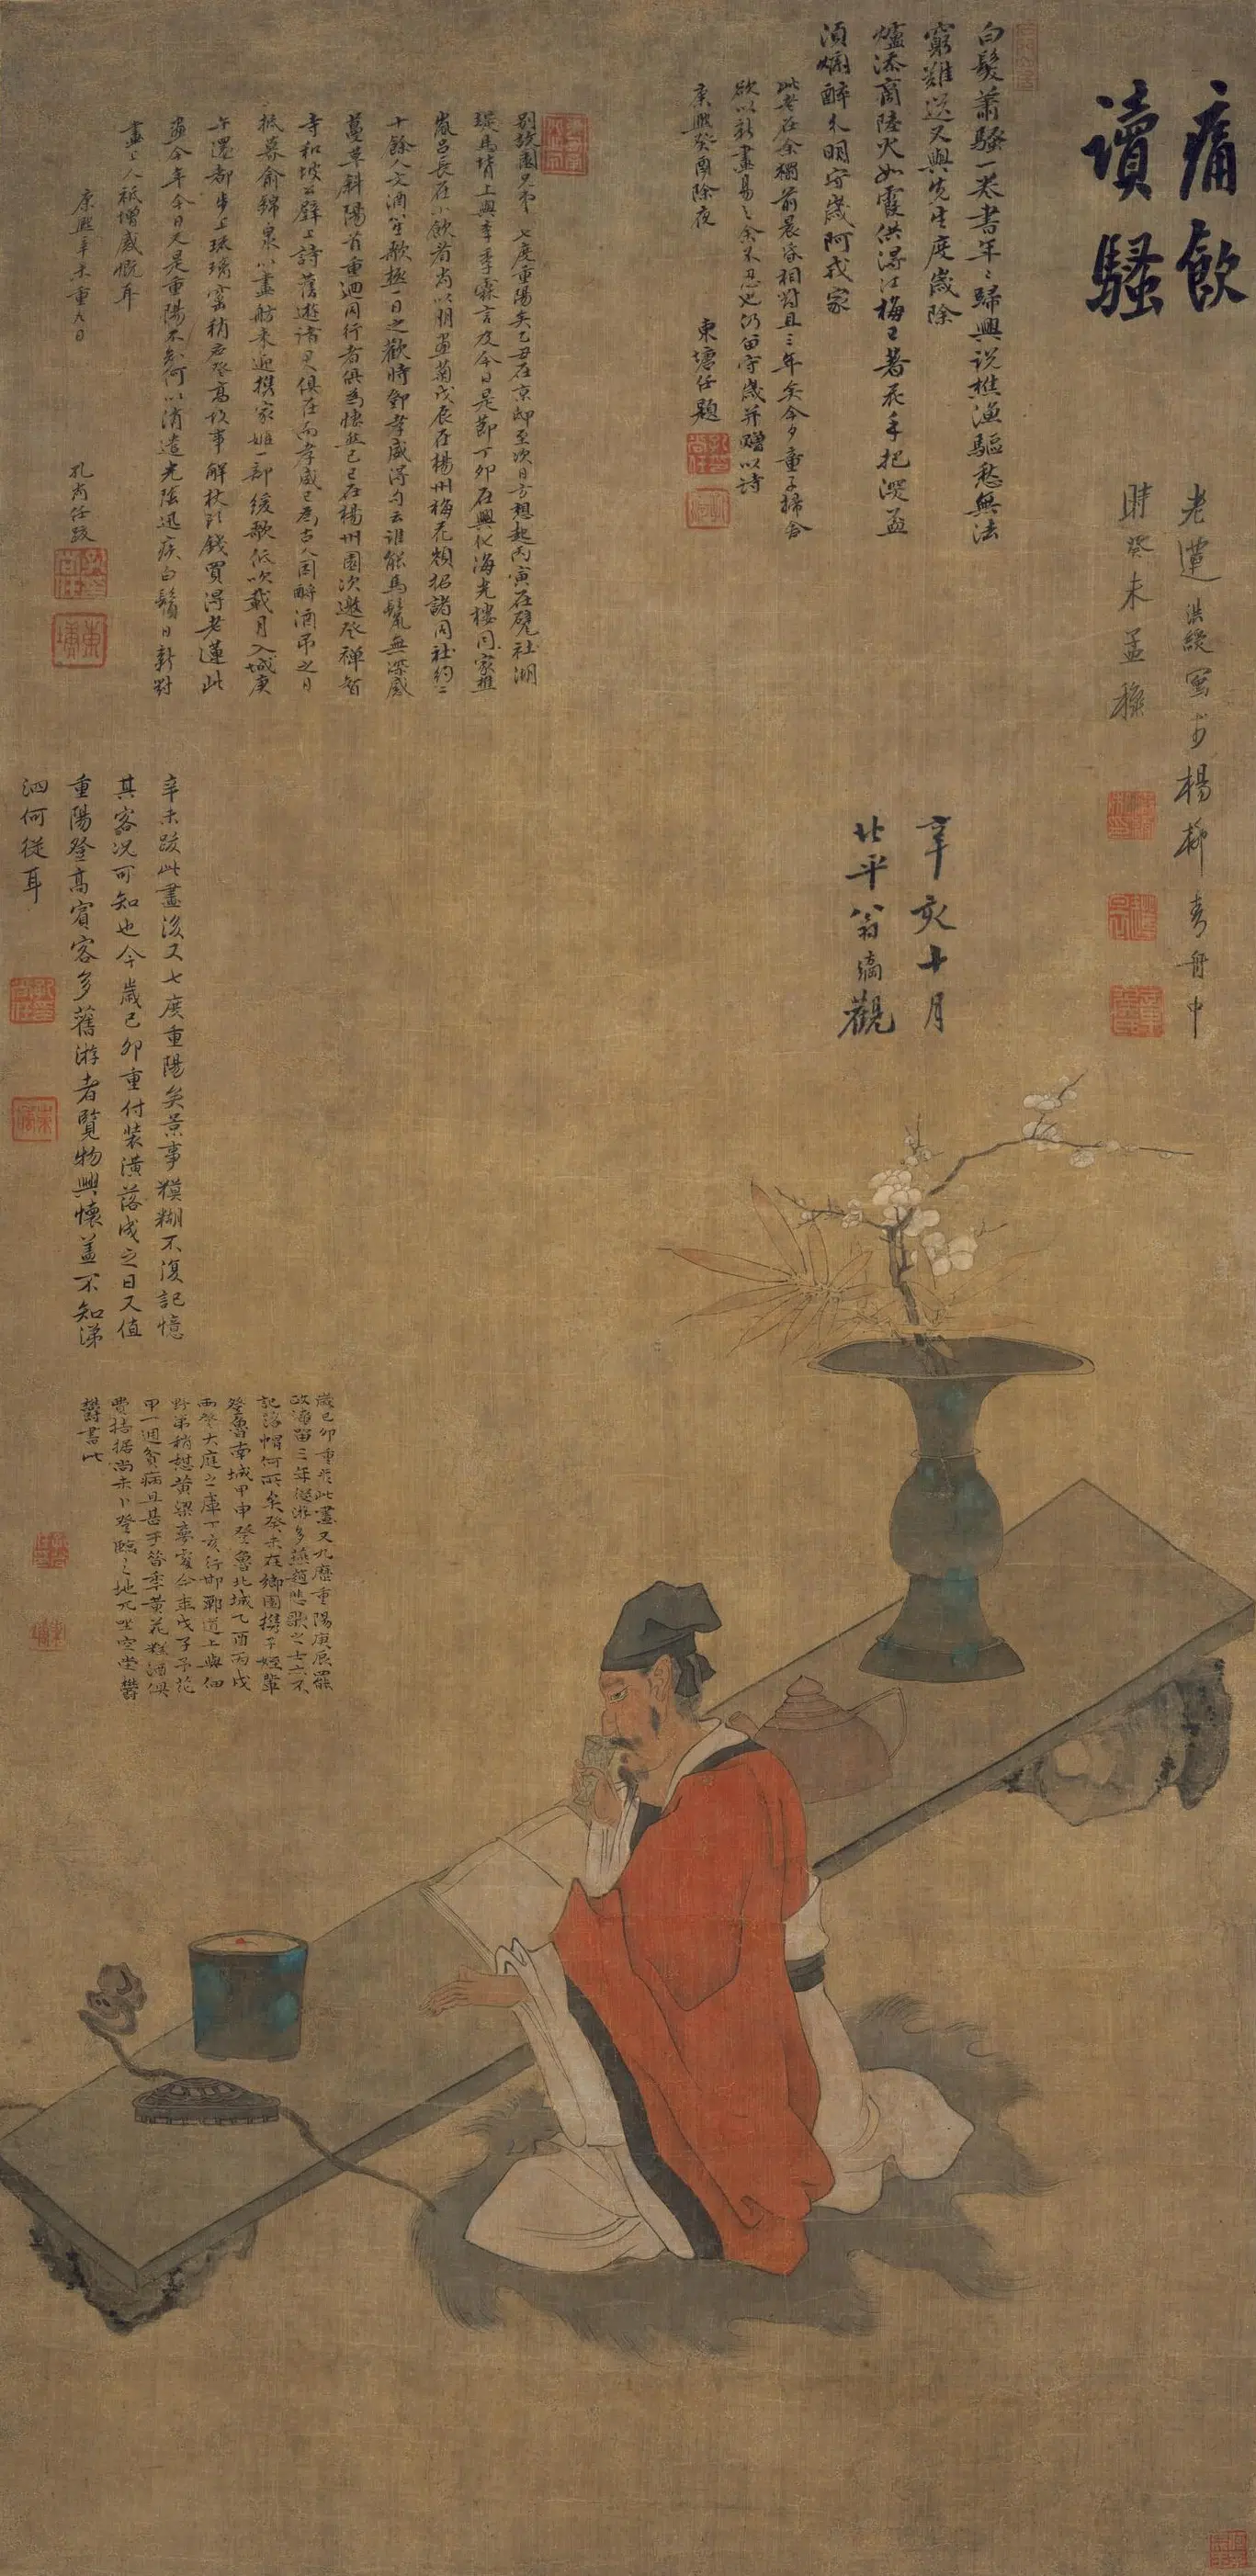 痛飲
讀騷
老蓮洪綬寫于楊柳青舟中
時癸未孟穐
白髮蕭騷一卷書年〻歸興說樵漁驅愁無法
窮難送又與先生度歲除
爐添商陸火如霞供得江梅已著花手把深盃
須爛醉分明守歲阿戎家
此老在余獨前晨昏相對且三年矣今夕童子掃舍
欲以新畫易之余不忍也仍留守歲并贈以詩
康熙癸酉除夜 東塘任題
別故園兄弟七度重陽矣乙丑在京邸至次日方想起丙寅在甓社湖
堤馬背上與李季霖言及今日是節丁卯在興化海光樓同家樵
嵐呂長在小飲者尚以朋畫菊戊辰在楊州梅花嶺招諸同社約二
十餘人文酒笙歌極一日之歡時鄧孝威得句云誰能馬鬣無深感
蔓草斜陽首重迴同行者俱為悽然己巳在楊州園次邀登禪智
寺和坡公壁上詩舊遊諸君俱在而孝威已為古人因酹酒吊之日
抵暮俞錦泉以畫舫來迎攜家姬一部緩歌低吹載月入城庚
午還都步上琉璃窰稍應登高故事解杖頭錢買得老蓮此
畫今年今日又是重陽不知何以消遣光陰迅疾白鬚日新對
畫上人祇增感慨耳
康熙辛未重九日 孔尚任跋
辛亥十月
北平翁觀
辛未跋此畫後又七度重陽矣景事糢糊不復記憶
其客況可知也今歲己卯重付裝潢落成之日又值
重陽登高賓客多舊游者覽物興懷蓋不知涕
泗何從耳
歲己卯重裝此畫又九歷重陽庚辰罷
政滯留三年從游多燕趙悲歌之士亦不
記落帽何所矣癸未在鄉園攜子姪輩
登魯南城甲申登魯北城乙酉丙戌
兩登大庭之庫丁亥行邯鄲道上與佃
野弟稍憩黃粱夢處今年戊子予花
甲一週貧病且甚于昔季黃花糕酒俱
費拮据尚未卜登臨之地兀坐空堂鬱
鬱書此